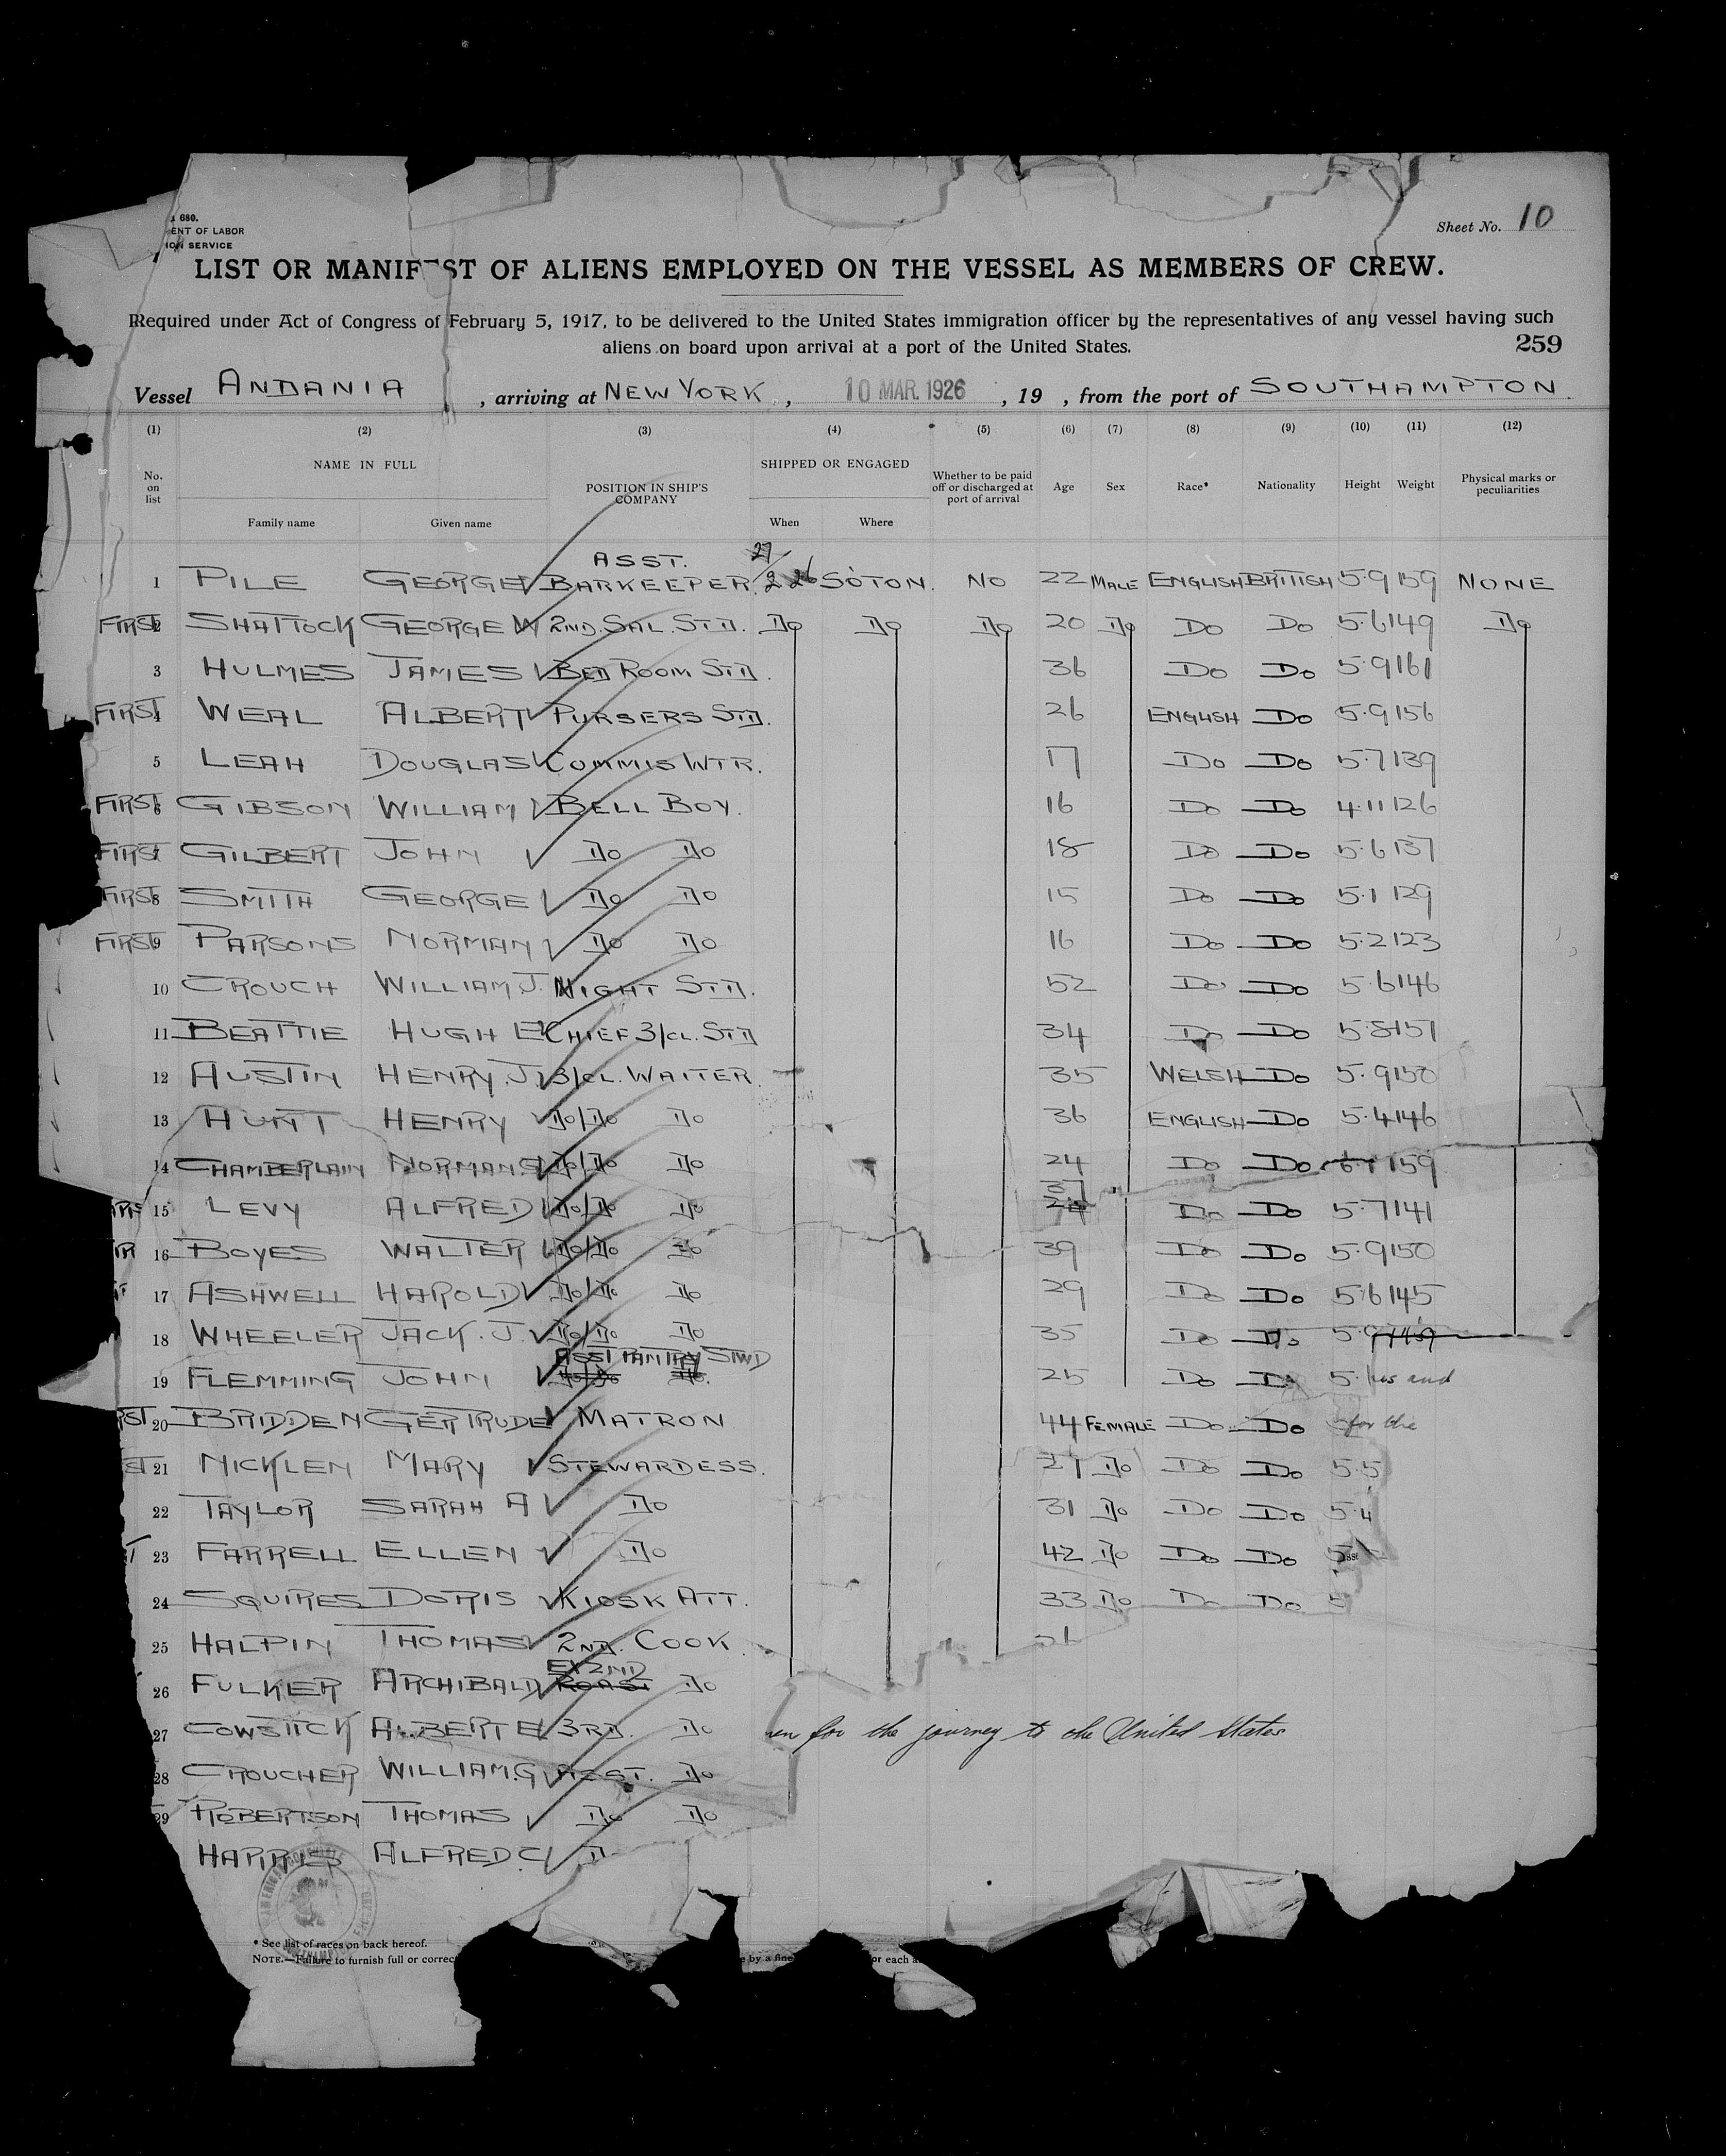 680.
ENT OF LABOR
ION SERVICE
Sheet No. 10
LIST OR MANIFEST OF ALIENS EMPLOYED ON THE VESSEL AS MEMBERS OF CREW.
Required under Act of Congress of February 5, 1917, to be delivered to the United States immigration officer by the representatives of any vessel having such
aliens on board upon arrival at a port of the United States.
259
Vessel ANDANIA, arriving at NEW YORK, 10 MAR. 1926, 19 , from the port of SOUTHAMPTON
(1) (2) (3) (4) (5) (6) (7) (8) (9) (10) (11) (12)
No. on list NAME IN FULL Family name Given name POSITION IN SHIP'S COMPANY SHIPPED OR ENGAGED When Where Whether to be paid off or discharged at port of arrival Age Sex Race* Nationality Height Weight Physical marks or peculiarities
1 PILE GEORGE ASST. BARKEEPER. 27/2 26 SOTON. NO 22 MALE ENGLISH BRITISH 5.9 159 NONE
FIRST 2 SHATTOCK GEORGE W 2ND. SAL. STD. Do Do Do 20 Do Do Do 5.6 149 Do
3 HULMES JAMES BED ROOM STD. 36 Do Do 5.9 161
FIRST 4 WEAL ALBERT PURSERS STD. 26 ENGLISH Do 5.9 156
5 LEAH DOUGLAS COMMIS WTR. 17 Do Do 5.7 139
FIRST 6 GIBSON WILLIAM BELL BOY. 16 Do Do 4.11 126
FIRST 7 GILBERT JOHN Do Do 18 Do Do 5.6 137
FIRST 8 SMITH GEORGE Do Do 15 Do Do 5.1 129
FIRST 9 PARSONS NORMAN Do Do 16 Do Do 5.2 123
10 CROUCH WILLIAM J. NIGHT STD. 52 Do Do 5.6 146
11 BEATTIE HUGH E CHIEF 3/CL. STD 34 Do Do 5.8 151
12 AUSTIN HENRY. J. 3/CL. WAITER. 35 WELSH Do 5.9 150
13 HUNT HENRY Do/Do Do 36 ENGLISH Do 5.4 146
14 CHAMBERLAIN NORMAN.S Do/Do Do 24 Do Do 159
15 LEVY ALFRED Do/Do Do 37 Do Do 5.7 141
16 BOYES WALTER Do/Do Do 39 Do Do 5.9 150
17 ASHWELL HAROLD Do/Do Do 29 Do Do 5.6 145
18 WHEELER JACK. J. Do/Do Do 35 Do Do 5.9
19 FLEMMING JOHN ASST PANTRY STWD Do/Do Do. 25 Do Do 5. and
ST 20 BRIDDEN GERTRUDE MATRON 44 FEMALE Do Do for the
ST 21 NICKLEN MARY STEWARDESS. 27 Do Do Do 5.5
22 TAYLOR SARAH A Do 31 Do Do Do 5.4
T 23 FARRELL ELLEN Do 42 Do Do Do 5
24 SQUIRES DORIS KIOSK ATT. 33 Do Do Do. 5
25 HALPIN THOMAS 2ND. COOK
26 FULKER ARCHIBALD EX 2ND ROAST Do
27 COWSTICK ALBERT E 3RD. Do
en for the journey to the United States
28 CROUCHER WILLIAM.G ASST. Do
29 ROBERTSON THOMAS Do Do
HARRIS ALFRED.C D
* See list of races on back hereof.
NOTE.—Failure to furnish full or correc
e by a fine
or each a